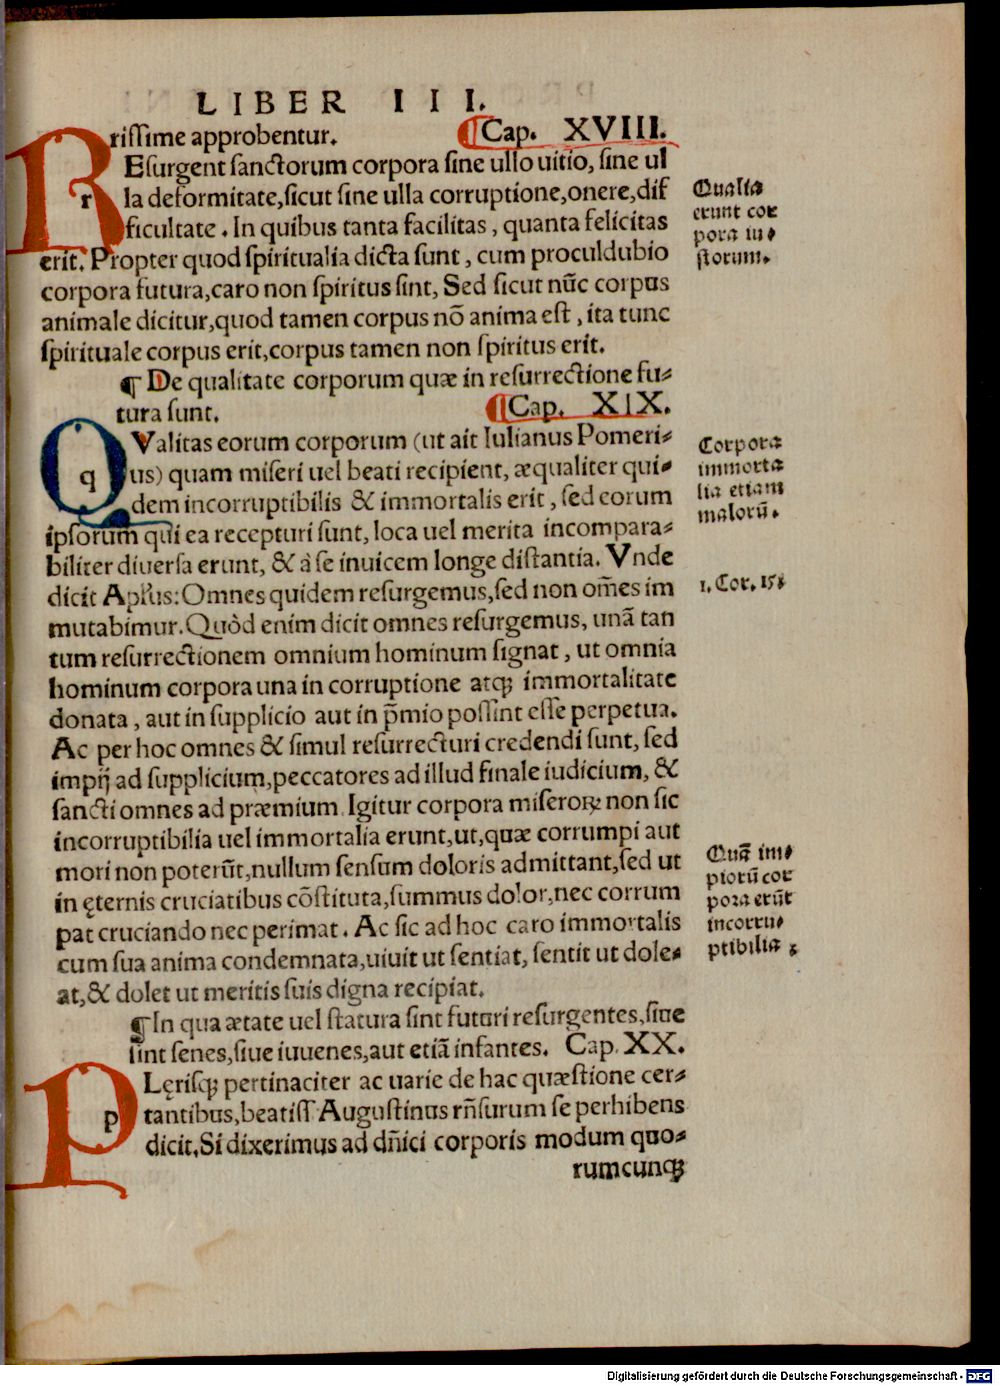 LIBER III.
rissime approbentur. ¶Cap. XVIII.
REsurgent sanctorum corpora sine ullo uitio, sine ul
la deformitate,sicut sine ulla corruptione,onere,dif
ficultate. In quibus tanta facilitas, quanta felicitas
erit. Propter quod spiritualia dicta sunt, cum proculdubio
corpora futura,caro non spiritus sint, Sed sicut nũc corpus
animale dicitur,quod tamen corpus nõ anima est, ita tunc
spirituale corpus erit,corpus tamen non spiritus erit.
Qualia
erunt cor
pora iu⸗
storum.
¶ De qualitate corporum quæ in resurrectione fu⸗
tura sunt. ¶Cap. XIX.
QValitas eorum corporum (ut ait Iulianus Pomeri⸗
us) quam miseri uel beati recipient, æqualiter qui⸗
dem incorruptibilis & immortalis erit, sed eorum
ipsorum qui ea recepturi sunt, loca uel merita incompara⸗
biliter diuersa erunt, & à se inuicem longe distantia. Vnde
dicit Apl'us: Omnes quidem resurgemus,sed non om̃es im
mutabimur. Quòd enim dicit omnes resurgemus, unã tan
tum resurrectionem omnium hominum signat, ut omnia
hominum corpora una in corruptione atq; immortalitate
donata, aut in supplicio aut in p̃mio possint esse perpetua.
Ac per hoc omnes & simul resurrecturi credendi sunt, sed
impij ad supplicium,peccatores ad illud finale iudicium, &
sancti omnes ad præmium. Igitur corpora miseroꝝ non sic
incorruptibilia uel immortalia erunt,ut,quæ corrumpi aut
mori non poterũt,nullum sensum doloris admittant,sed ut
in ęternis cruciatibus cõstituta,summus dolor,nec corrum
pat cruciando nec perimat. Ac sic ad hoc caro immortalis
cum sua anima condemnata,uiuit ut sentiat, sentit ut dole⸗
at,& dolet ut meritis suis digna recipiat.
Corpora
immorta
lia etiam
malorũ.
1. Cor. 15.
Quã im⸗
piorũ cor
pora erũt
incorru⸗
ptibilia.
¶In qua ætate uel statura sint futuri resurgentes,siue
sint senes,siue iuuenes,aut etiã infantes. Cap. XX.
PLęrisq; pertinaciter ac uarie de hac quæstione cer⸗
tantibus,beatiss Augustinus rñsurum se perhibens
dicit,Si dixerimus ad dñici corporis modum quo⸗
rumcunq;
Digitalisierung gefördert durch die Deutsche Forschungsgemeinschaft - DFG